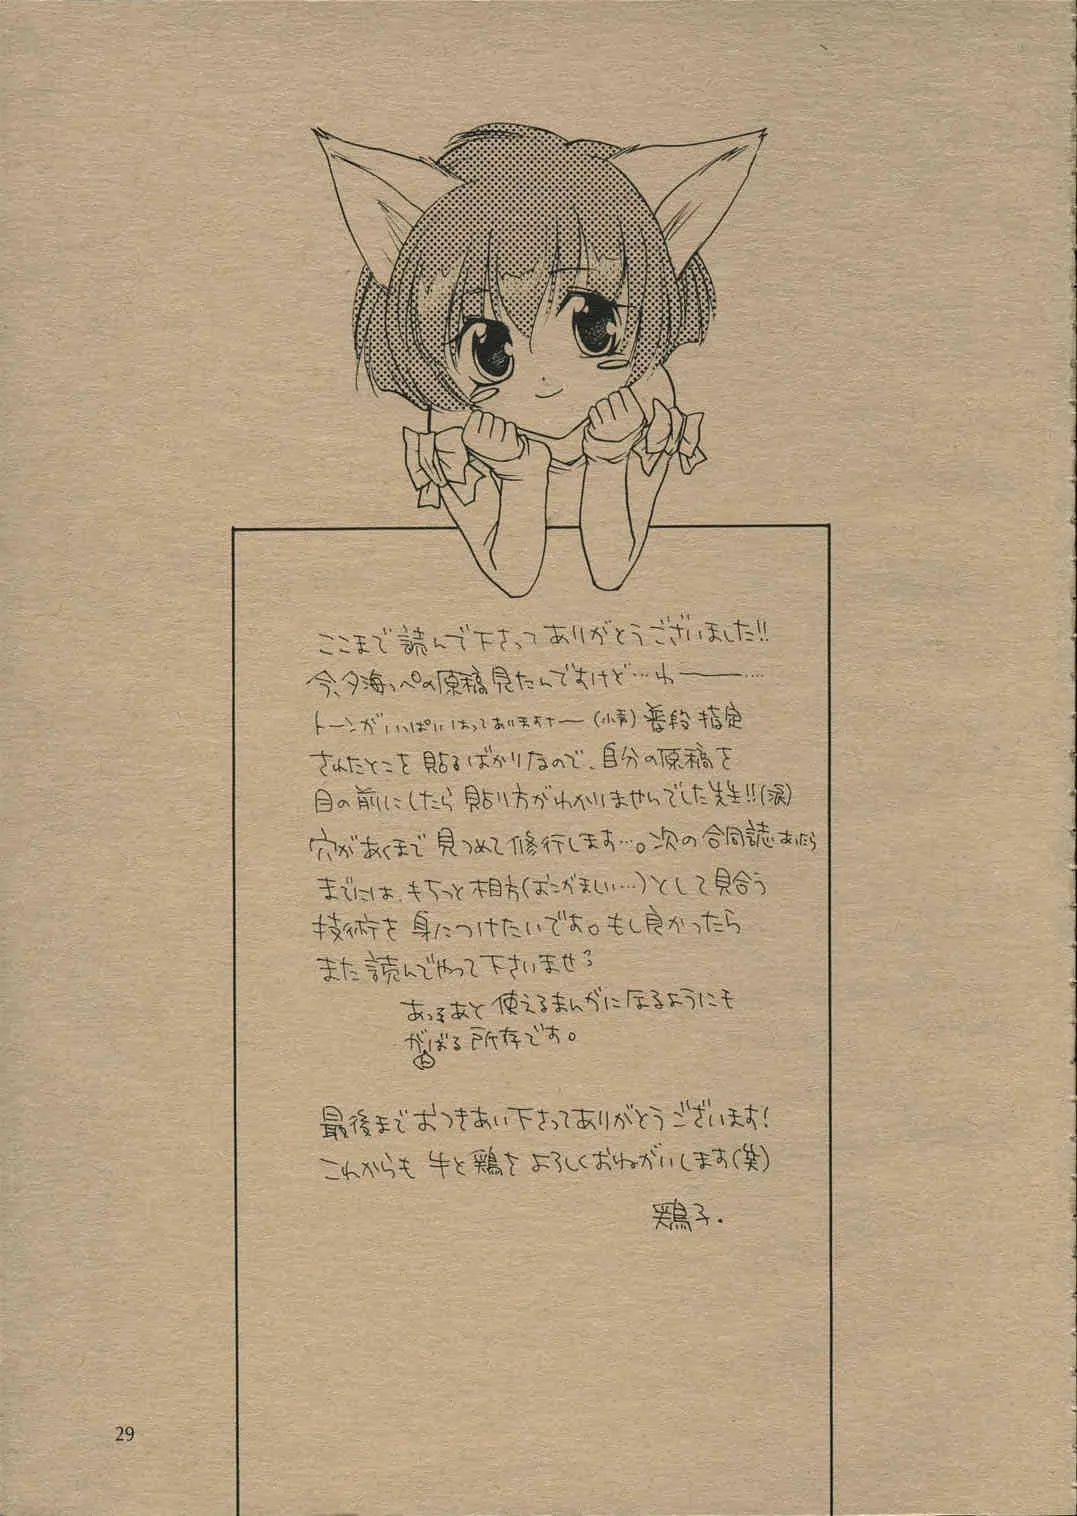 ここまで読んで下さってありがとうございました!!
今、夕海っぺの原稿見たんですけど…わ――…
トーンがいっぱいはってありますナー(小声)普段指定
されたとこを貼るばかりなので、自分の原稿を
目の前にしたら貼り方がわかりませんでした先生!!(涙)
穴があくまで見つめて修行します…。次の合同誌あたら
までには、もちっと相方(おこがましい…)として見合う
技術を身につけたいです。もし良かったら
また読んでやって下さいませ?
あっあと使えるまんがになるようにも
がんばる所存です。
最後までおつきあい下さってありがとうございます!
これからも牛と鶏をよろしくおねがいします(笑)
鶏子.
29